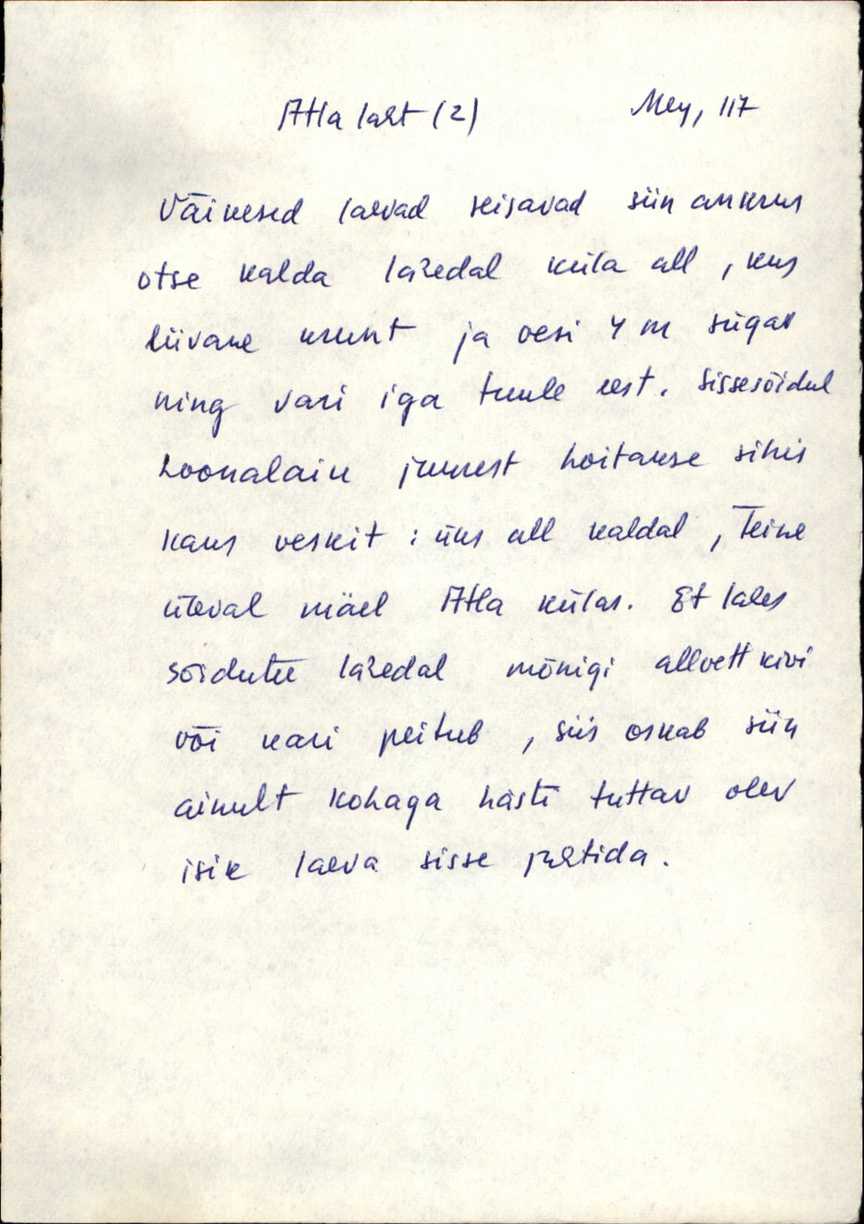 Atla laht (2) Mey, 117
Väikesed laevad seisavad siin ankrus
otse kalda lähedal küla all, kus
liivane krunt ja vesi 4 m sügav
ning vari iga tuule eest. Sissesõidul
Loonalaiu juurest hoitakse sihis
kaks veskit : üks all kaldal, teine
üleval mäel Atla külas. Et lahes
sõidutee lähedal mõnigi allvett kivi
või kari peitub, siis oskab siin
ainult kohaga hästi tuttav olev
isik laeva sisse juhtida.